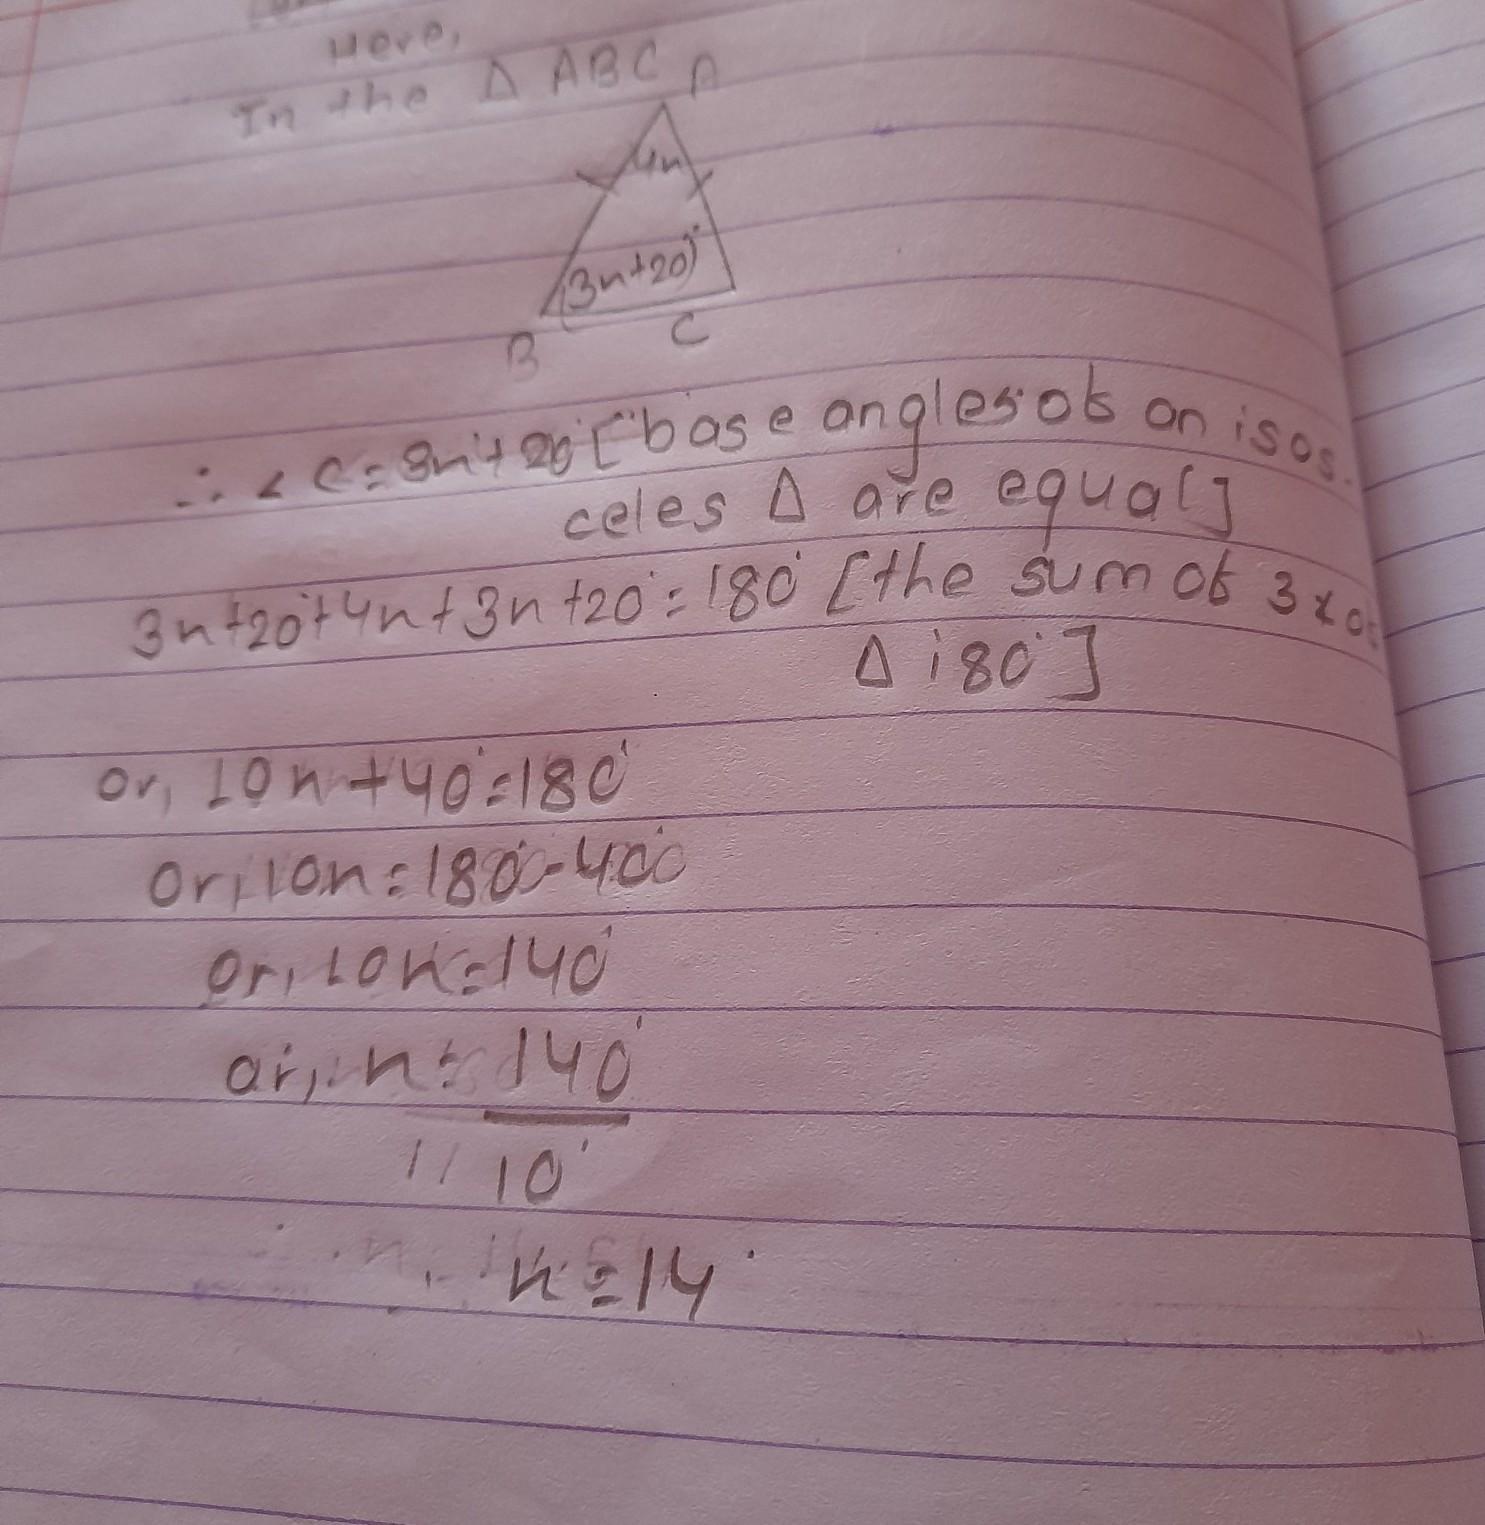 Here,
In the Δ ABC
A
4n
(3n+20)°
B
C
∴ ∠C=3n+20° [base angles of an isos.
celes Δ are equal]
3n+20°+4n+3n+20°=180° [the sum of 3 ∠ of
Δ 180°]
or, 10n+40°=180°
or, 10n=180°-40°
or, 10n=140°
or, n=140°
10°
n=14°